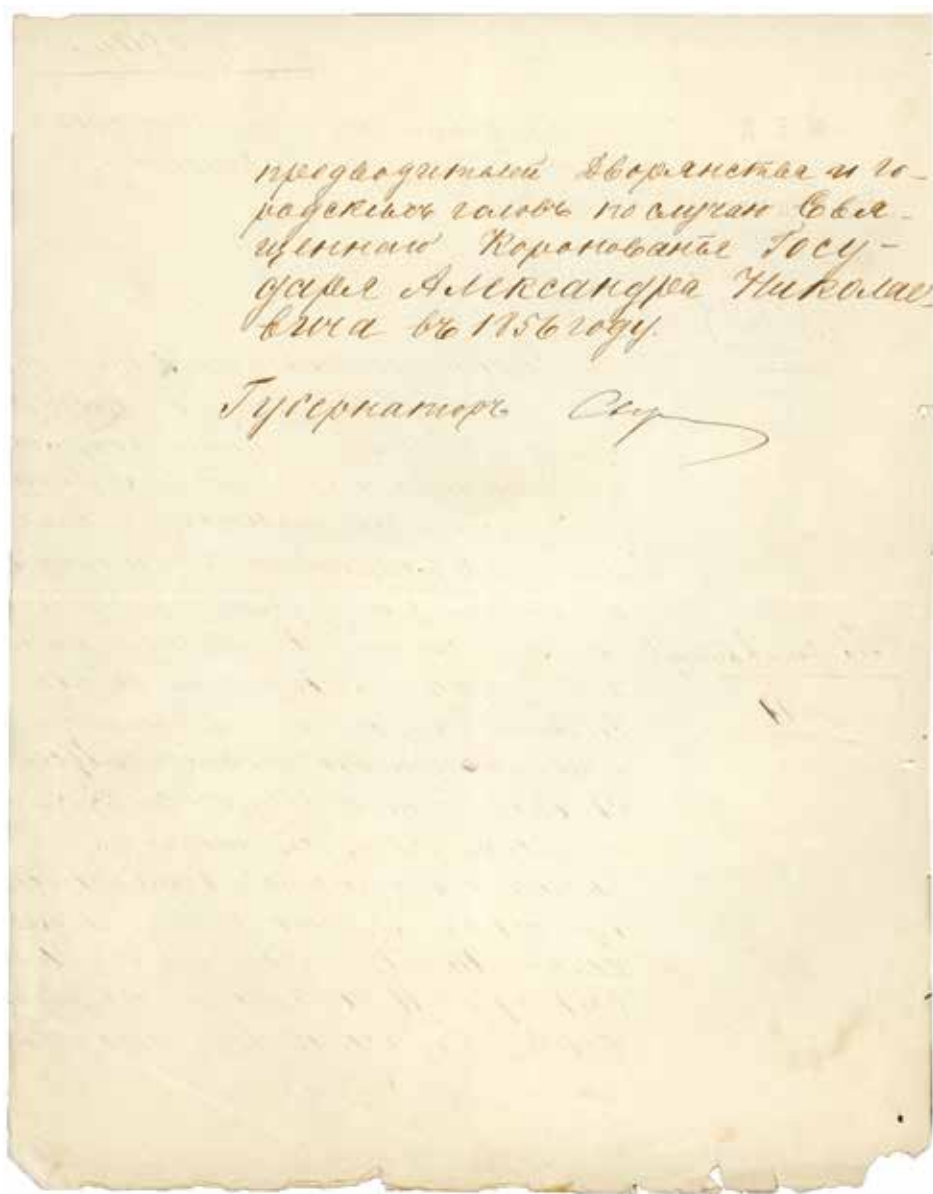 предводителей Дворянства и го-
родскихъ головъ по случаю Свя-
щеннаго Коронованія Госу-
даря Александра Николае-
вича въ 1856 году.
Губернаторъ